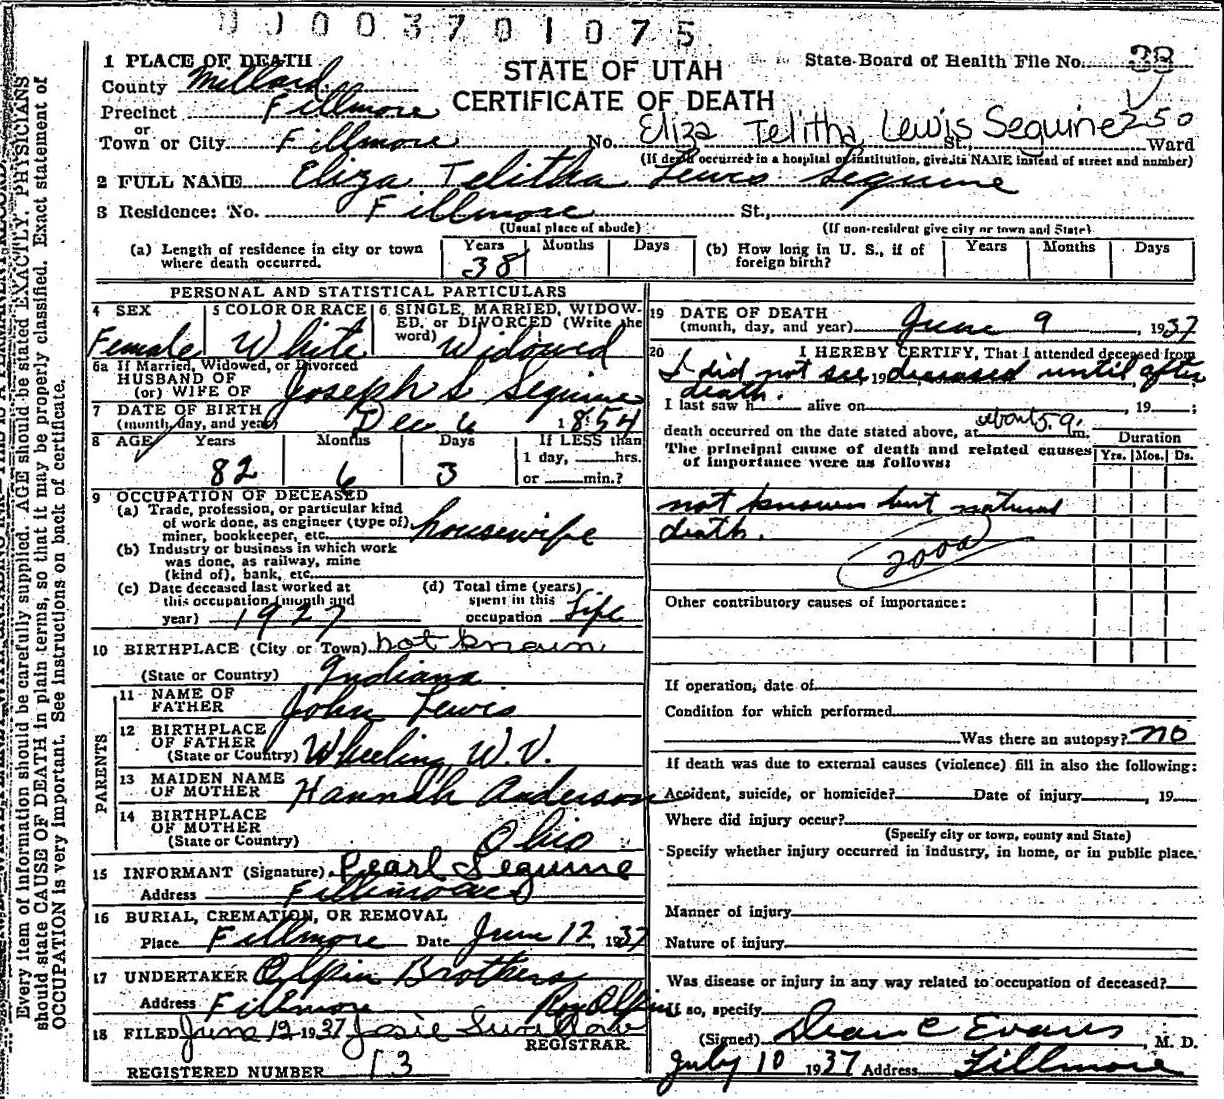 0 0 0 3 7 0 1 0 7 5
1 PLACE OF DEATH
County Millard
Precinct Fillmore
Town or City Fillmore
STATE OF UTAH
CERTIFICATE OF DEATH
State Board of Health File No. 33
250
No. Eliza Telitha Lewis Seguine St., Ward
(If death occurred in a hospital or institution, give its NAME instead of street and number)
2 FULL NAME Eliza Telitha Lewis Seguine
3 Residence: No. Fillmore St.,
(Usual place of abode) (If non-resident give city or town and State)
(a) Length of residence in city or town where death occurred. Years 38 Months Days
(b) How long in U. S., if of foreign birth? Years Months Days
PERSONAL AND STATISTICAL PARTICULARS
4 SEX Female
5 COLOR OR RACE White
6 SINGLE, MARRIED, WIDOWED, or DIVORCED (Write the word) Widowed
6a If Married, Widowed, or Divorced
HUSBAND OF
(or) WIFE OF Joseph S Seguine
7 DATE OF BIRTH
(month, day, and year) Dec 6 1854
8 AGE Years 82 Months 6 Days 3
If LESS than
1 day, hrs.
or min.?
9 OCCUPATION OF DECEASED
(a) Trade, profession, or particular kind
of work done, as engineer (type of)
miner, bookkeeper, etc. housewife
(b) Industry or business in which work
was done, as railway, mine
(kind of), bank, etc.
(c) Date deceased last worked at
this occupation (month and
year) 1927
(d) Total time (years)
spent in this
occupation Life
10 BIRTHPLACE (City or Town) not known
(State or Country) Indiana
PARENTS
11 NAME OF FATHER John Lewis
12 BIRTHPLACE OF FATHER
(State or Country) Wheeling W. V.
13 MAIDEN NAME OF MOTHER Hannah Anderson
14 BIRTHPLACE OF MOTHER
(State or Country) Ohio
15 INFORMANT (Signature) Pearl Seguine
Address Fillmore
16 BURIAL, CREMATION, OR REMOVAL
Place Fillmore Date June 12, 1937
17 UNDERTAKER Olpin Brothers
Address Fillmore Roy Olpin
18 FILED June 12 1937 Josie
REGISTRAR
REGISTERED NUMBER 13
19 DATE OF DEATH
(month, day, and year) June 9, 1937
20 I HEREBY CERTIFY, That I attended deceased from
I did not see 19 deceased until after
death.
I last saw h alive on , 19 ;
death occurred on the date stated above, at about 5 a. m.
The principal cause of death and related causes
of importance were as follows:
Duration
Yrs. Mos. Ds.
not known but natural
death.
200a
Other contributory causes of importance:
If operation, date of
Condition for which performed
Was there an autopsy? no
If death was due to external causes (violence) fill in also the following:
Accident, suicide, or homicide? Date of injury , 19
Where did injury occur?
(Specify city or town, county and State)
Specify whether injury occurred in industry, in home, or in public place.
Manner of injury
Nature of injury
Was disease or injury in any way related to occupation of deceased?
If so, specify
(Signed) Dean C Evans, M. D.
July 10 1937 Address Fillmore
Every item of information should be carefully supplied. AGE should be stated EXACTLY. PHYSICIANS
should state CAUSE OF DEATH in plain terms, so that it may be properly classified. Exact statement of
OCCUPATION is very important. See instructions on back of certificate.